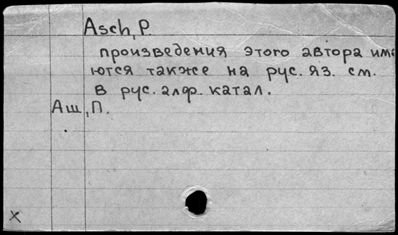 Asch, P.
произведения этого автора име
ются также на рус. яз. см.
в рус. алф. катал.
Аш, П.
x